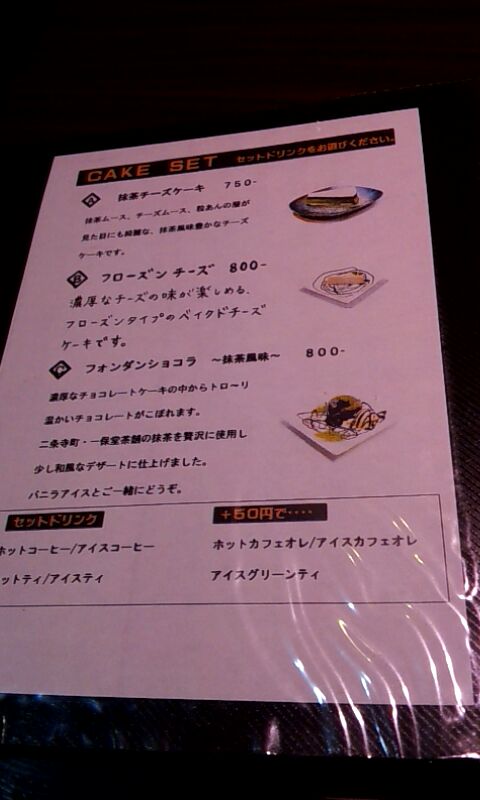 CAKE SET セットドリンクをお選びください。
A 抹茶チーズケーキ 750-
抹茶ムース、チーズムース、粒あんの層が
見た目にも綺麗な、抹茶風味豊かなチーズ
ケーキです。
B フローズン チーズ 800-
濃厚なチーズの味が楽しめる、
フローズンタイプのベイクドチーズ
ケーキです。
C フォンダンショコラ ～抹茶風味～ 800-
濃厚なチョコレートケーキの中からトロ～リ
温かいチョコレートがこぼれます。
二条寺町・一保堂茶舗の抹茶を贅沢に使用し
少し和風なデザートに仕上げました。
バニラアイスとご一緒にどうぞ。
セットドリンク
ホットコーヒー/アイスコーヒー
ットティ/アイスティ
+50円で‥‥
ホットカフェオレ/アイスカフェオレ
アイスグリーンティ